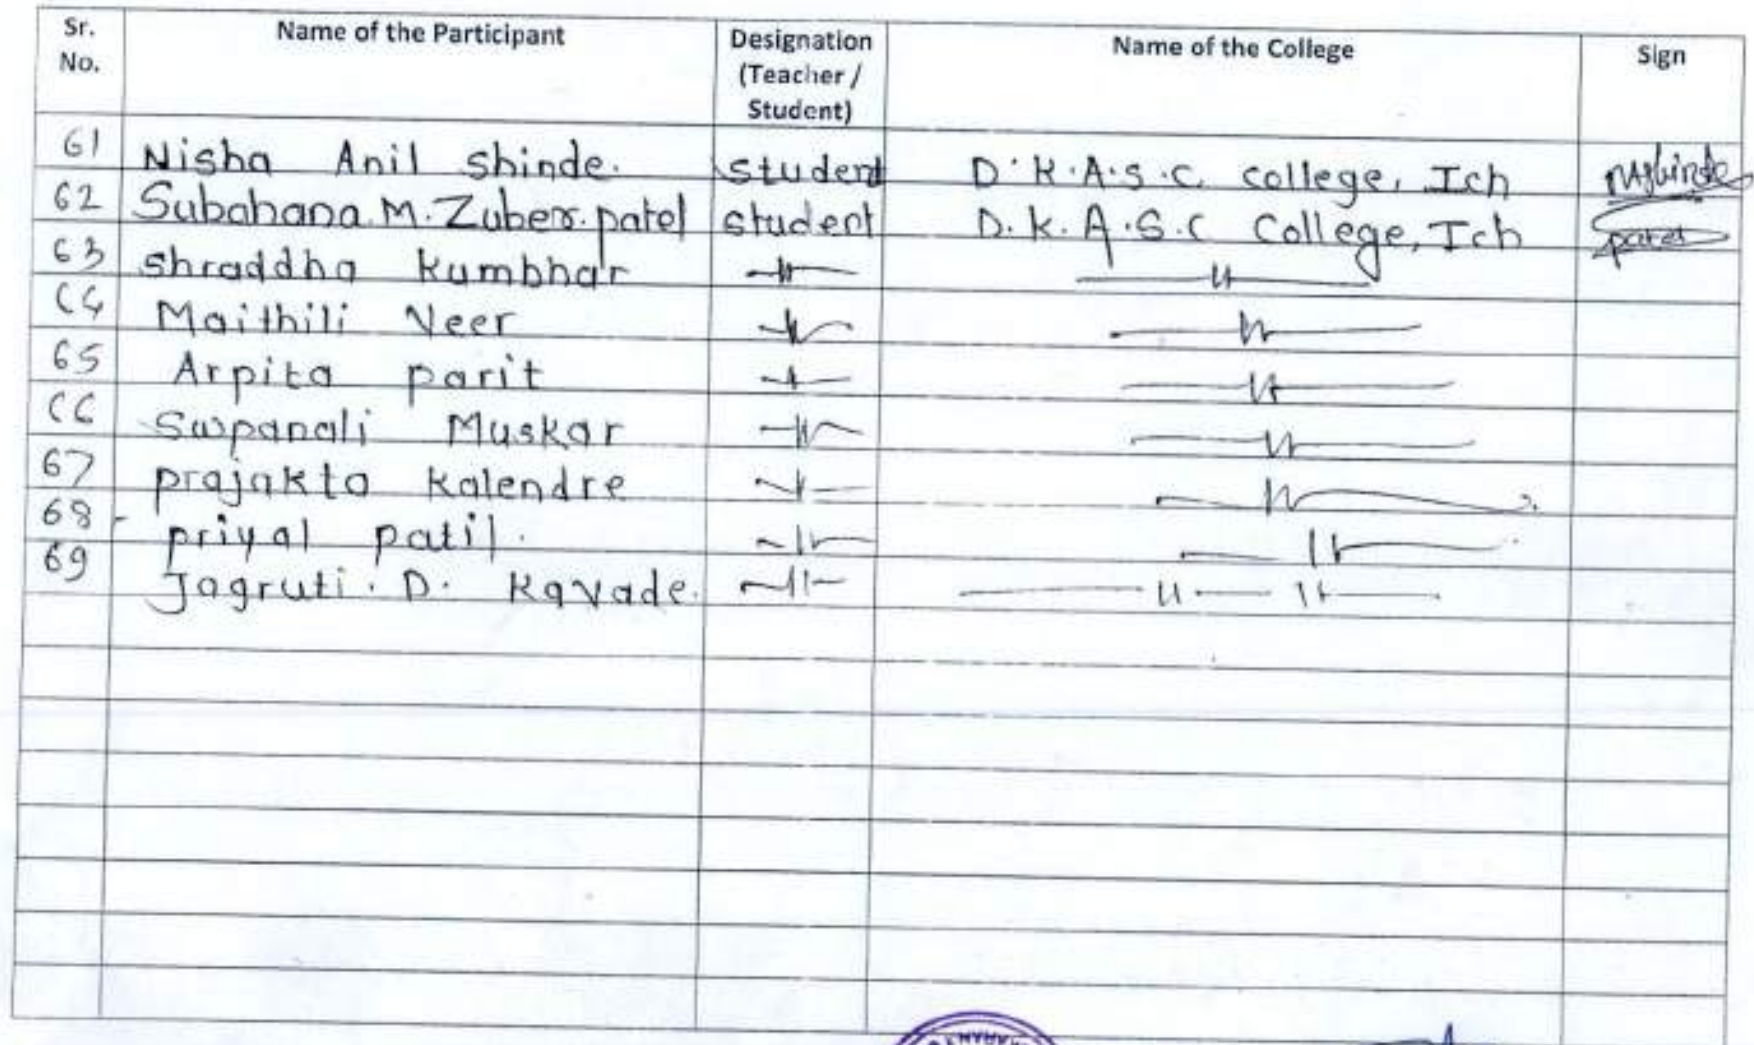 Sr. No. Name of the Participant Designation (Teacher / Student) Name of the College Sign
61 Nisha Anil Shinde. student D.K.A.S.C. college, Ich NAShinde
62 Subahana M. Zuber. patel student D.K.A.S.C College, Ich patel
63 shraddha kumbhar —〃— —〃—
64 Maithili Veer —〃— —〃—
65 Arpita parit —〃— —〃—
66 Swpanali Muskar —〃— —〃—
67 prajakta kalendre —〃— —〃—
68 priyal patil. —〃— —〃—
69 Jagruti. D. Kavade. —〃— —〃— 〃—